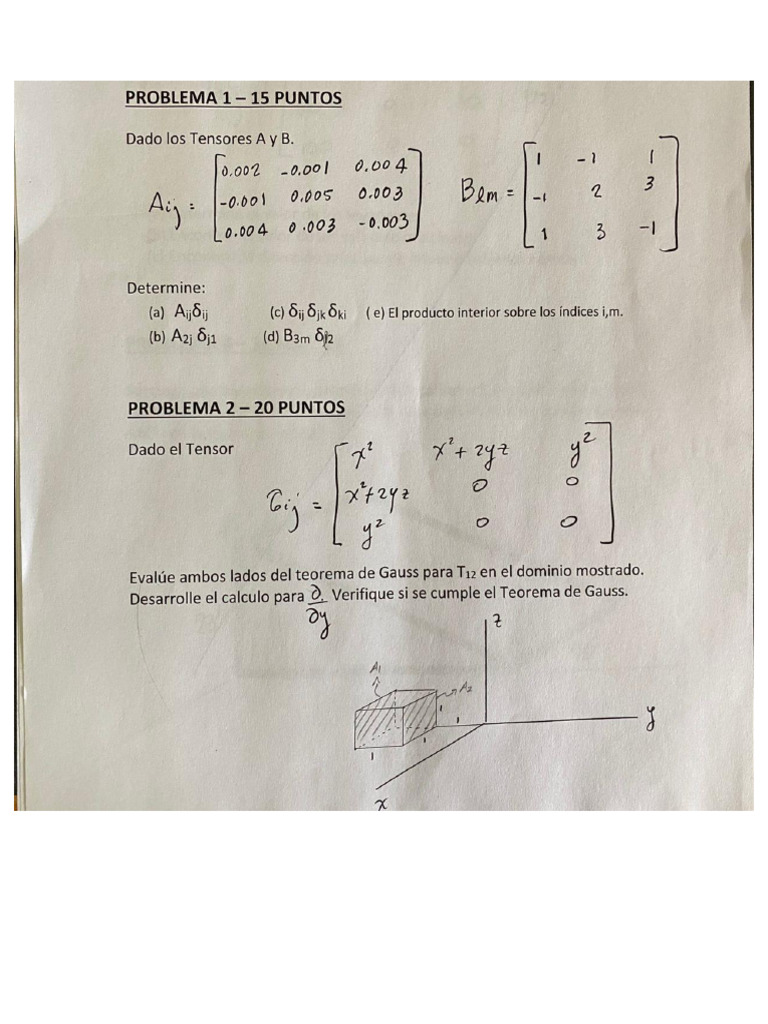 PROBLEMA 1 – 15 PUNTOS
Dado los Tensores A y B.
Aij = [0.002 -0.001 0.004
-0.001 0.005 0.003
0.004 0.003 -0.003]
Blm = [1 -1 1
-1 2 3
1 3 -1]
Determine:
(a) Aijδij (c) δij δjk δki ( e) El producto interior sobre los índices i,m.
(b) A2j δj1 (d) B3m δj2
PROBLEMA 2 – 20 PUNTOS
Dado el Tensor
τij = [x² x²+2yz y²
x²+2yz 0 0
y² 0 0]
Evalúe ambos lados del teorema de Gauss para T12 en el dominio mostrado.
Desarrolle el calculo para ∂/∂y. Verifique si se cumple el Teorema de Gauss.
z
A1
A2
1
1
1
1
y
x